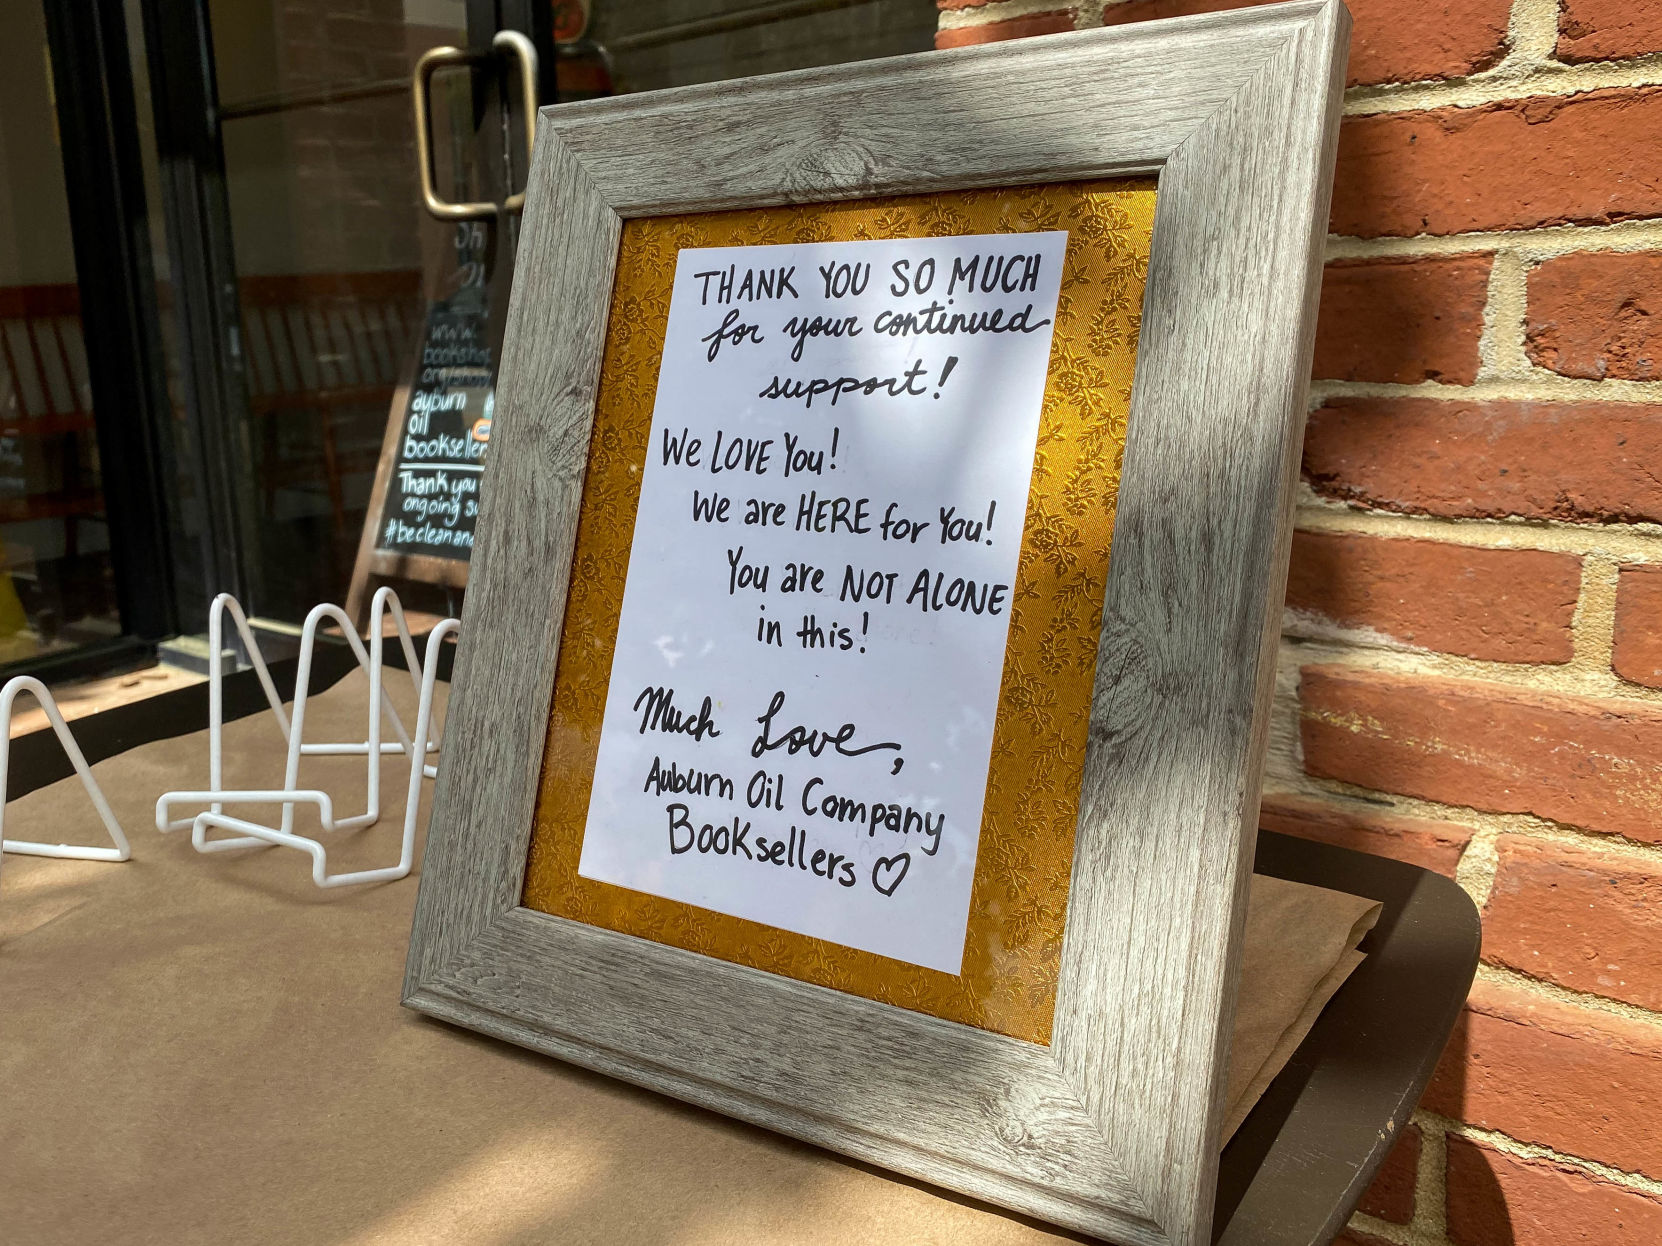 THANK YOU SO MUCH
for your continued
support!
We LOVE You!
We are HERE for You!
You are NOT ALONE
in this!
Much Love,
Auburn Oil Company
Booksellers ♡
Sh
www.
auburn
oil
bookseller
Thank you
ongoing
#becleanand